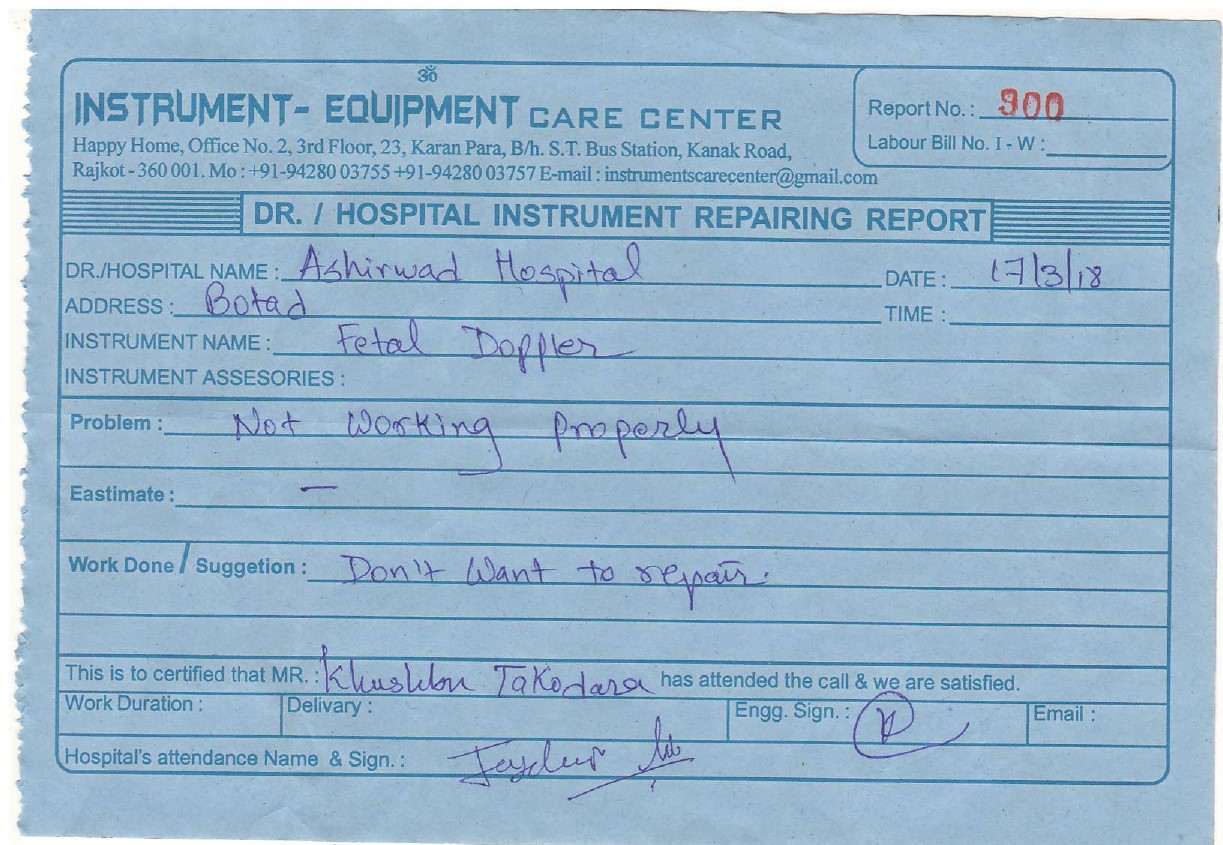 ॐ
INSTRUMENT- EQUIPMENT CARE CENTER
Happy Home, Office No. 2, 3rd Floor, 23, Karan Para, B/h. S.T. Bus Station, Kanak Road,
Rajkot - 360 001. Mo : +91-94280 03755 +91-94280 03757 E-mail : instrumentscarecenter@gmail.com
Report No. : 900
Labour Bill No. I - W :
DR. / HOSPITAL INSTRUMENT REPAIRING REPORT
DR./HOSPITAL NAME : Ashirwad Hospital DATE : 17/3/18
ADDRESS : Botad TIME :
INSTRUMENT NAME : Fetal Doppler
INSTRUMENT ASSESORIES :
Problem : Not Working Properly
Eastimate : —
Work Done / Suggetion : Don't Want to repair.
This is to certified that MR. : Khushbu Takodara has attended the call & we are satisfied.
Work Duration : Delivary : Engg. Sign. : Email :
Hospital's attendance Name & Sign. :